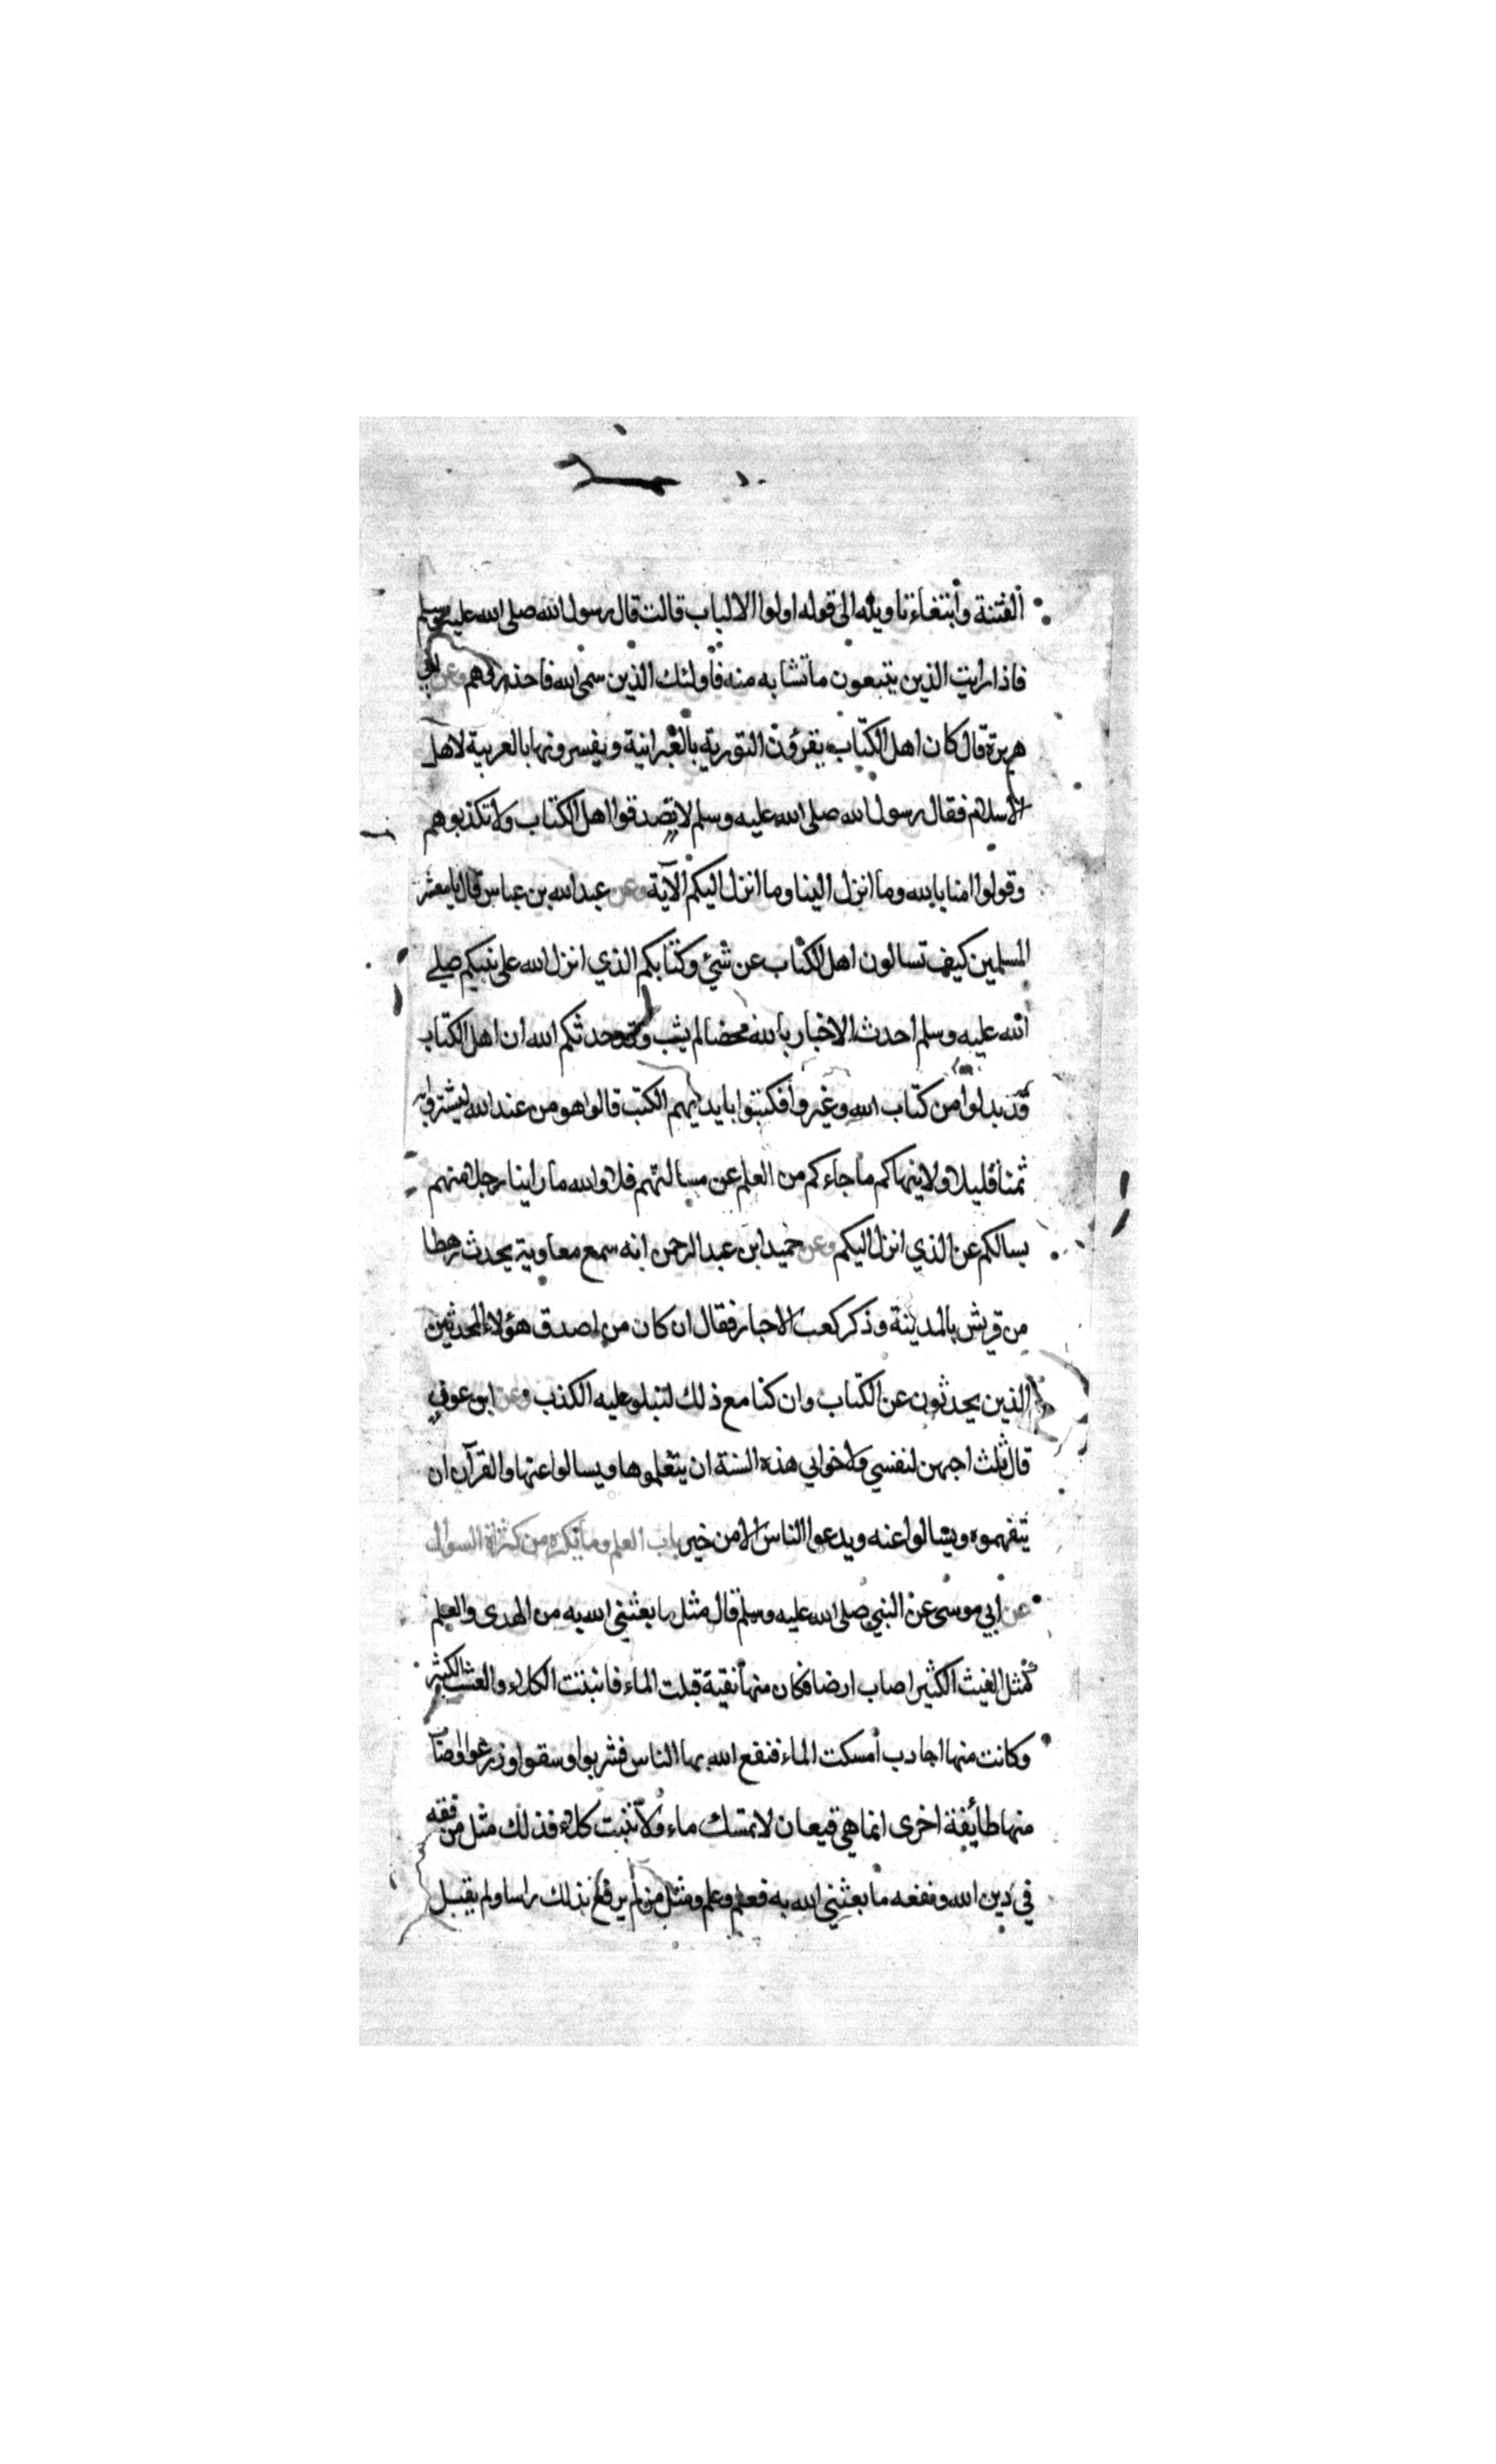 الفتنة وابتغاء تاويله الى قوله اولوا الالباب قالت قال رسول الله صلى الله عليه وسلم
فاذا رايت الذين يتبعون ما تشابه منه فاولئك الذين سمى الله فاحذروهم وعن ابي
هريرة قال كان اهل الكتاب يقرؤن التورية بالعبرانية ويفسرونها بالعربية لاهل
الاسلام فقال رسول الله صلى الله عليه وسلم لا تصدقوا اهل الكتاب ولا تكذبوهم
وقولوا امنا بالله وما انزل الينا وما انزل اليكم الآية وعن عبد الله بن عباس قال يا معشر
المسلمين كيف تسالون اهل الكتاب عن شئ وكتابكم الذي انزل الله على نبيكم صلى
الله عليه وسلم احدث الاخبار بالله محضا لم يشب وقد حدثكم الله ان اهل الكتاب
قد بدلوا من كتاب الله وغيروا فكتبوا بايديهم الكتب قالوا هو من عند الله ليشتروا به
ثمنا قليلا ولا ينهاكم ما جاءكم من العلم عن مسالتهم فلا والله ما راينا رجلا منهم
يسالكم عن الذي انزل اليكم وعن حميد ابن عبد الرحمن انه سمع معاوية يحدث رهطا
من قريش بالمدينة وذكر كعب الاحبار فقال ان كان من اصدق هؤلاء المحدثين
الذين يحدثون عن الكتاب وان كنا مع ذلك لنبلو عليه الكذب وعن ابن عون
قال ثلث احبهن لنفسي ولاخواني هذه السنة ان يتعلموها ويسالوا عنها والقرآن ان
يتفهموه ويسالوا عنه ويدعوا الناس الا من خير باب العلم وما يكره من كثرة السوال
عن ابي موسى عن النبي صلى الله عليه وسلم قال مثل ما بعثني الله به من الهدى والعلم
كمثل الغيث الكثير اصاب ارضا فكان منها نقية قبلت الماء فانبتت الكلاء والعشب الكثير
وكانت منها اجادب امسكت الماء فنفع الله بها الناس فشربوا وسقوا وزرعوا واصاب
منها طائفة اخرى انما هي قيعان لا تمسك ماء ولا تنبت كلاء فذلك مثل من فقه
في دين الله ونفعه ما بعثني الله به فعلم وعلم ومثل من لم يرفع بذلك راسا ولم يقبل